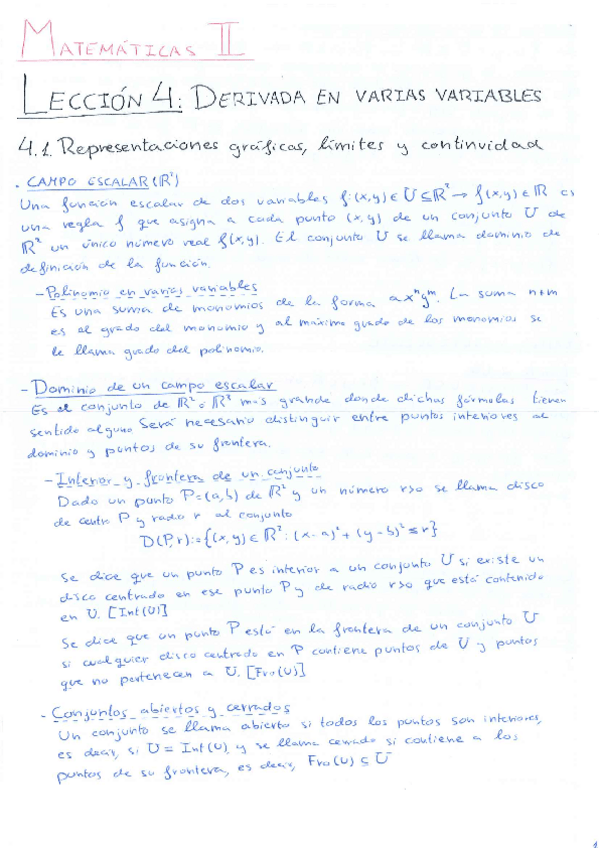 MATEMÁTICAS II
LECCIÓN 4: DERIVADA EN VARIAS VARIABLES
4.1. Representaciones gráficas, límites y continuidad
. CAMPO ESCALAR (ℝ²)
Una función escalar de dos variables f: (x,y) ∈ U ⊆ ℝ² → f(x,y) ∈ ℝ es
una regla f que asigna a cada punto (x,y) de un conjunto U de
ℝ² un único número real f(x,y). El conjunto U se llama dominio de
definición de la función.
- Polinomio en varias variables
Es una suma de monomios de la forma a xⁿyᵐ. La suma n+m
es el grado del monomio y al máximo grado de los monomios se
le llama grado del polinomio.
- Dominio de un campo escalar
Es el conjunto de ℝ² o ℝ³ más grande donde dichas fórmulas tienen
sentido alguno Será necesario distinguir entre puntos interiores al
dominio y puntos de su frontera.
- Interior y frontera de un conjunto
Dado un punto P=(a,b) de ℝ² y un número r>0 se llama disco
de centro P y radio r al conjunto
D(P,r):={(x,y) ∈ ℝ²: (x-a)² + (y-b)² ≤ r}
Se dice que un punto P es interior a un conjunto U si existe un
disco centrado en ese punto P y de radio r>0 que está contenido
en U. [Int(U)]
Se dice que un punto P está en la frontera de un conjunto U
si cualquier disco centrado en P contiene puntos de U y puntos
que no pertenecen a U. [Fro(U)]
- Conjuntos abiertos y cerrados
Un conjunto se llama abierto si todos los puntos son interiores,
es decir, si U = Int(U) y se llama cerrado si contiene a los
puntos de su frontera, es decir, Fro(U) ⊆ U
1